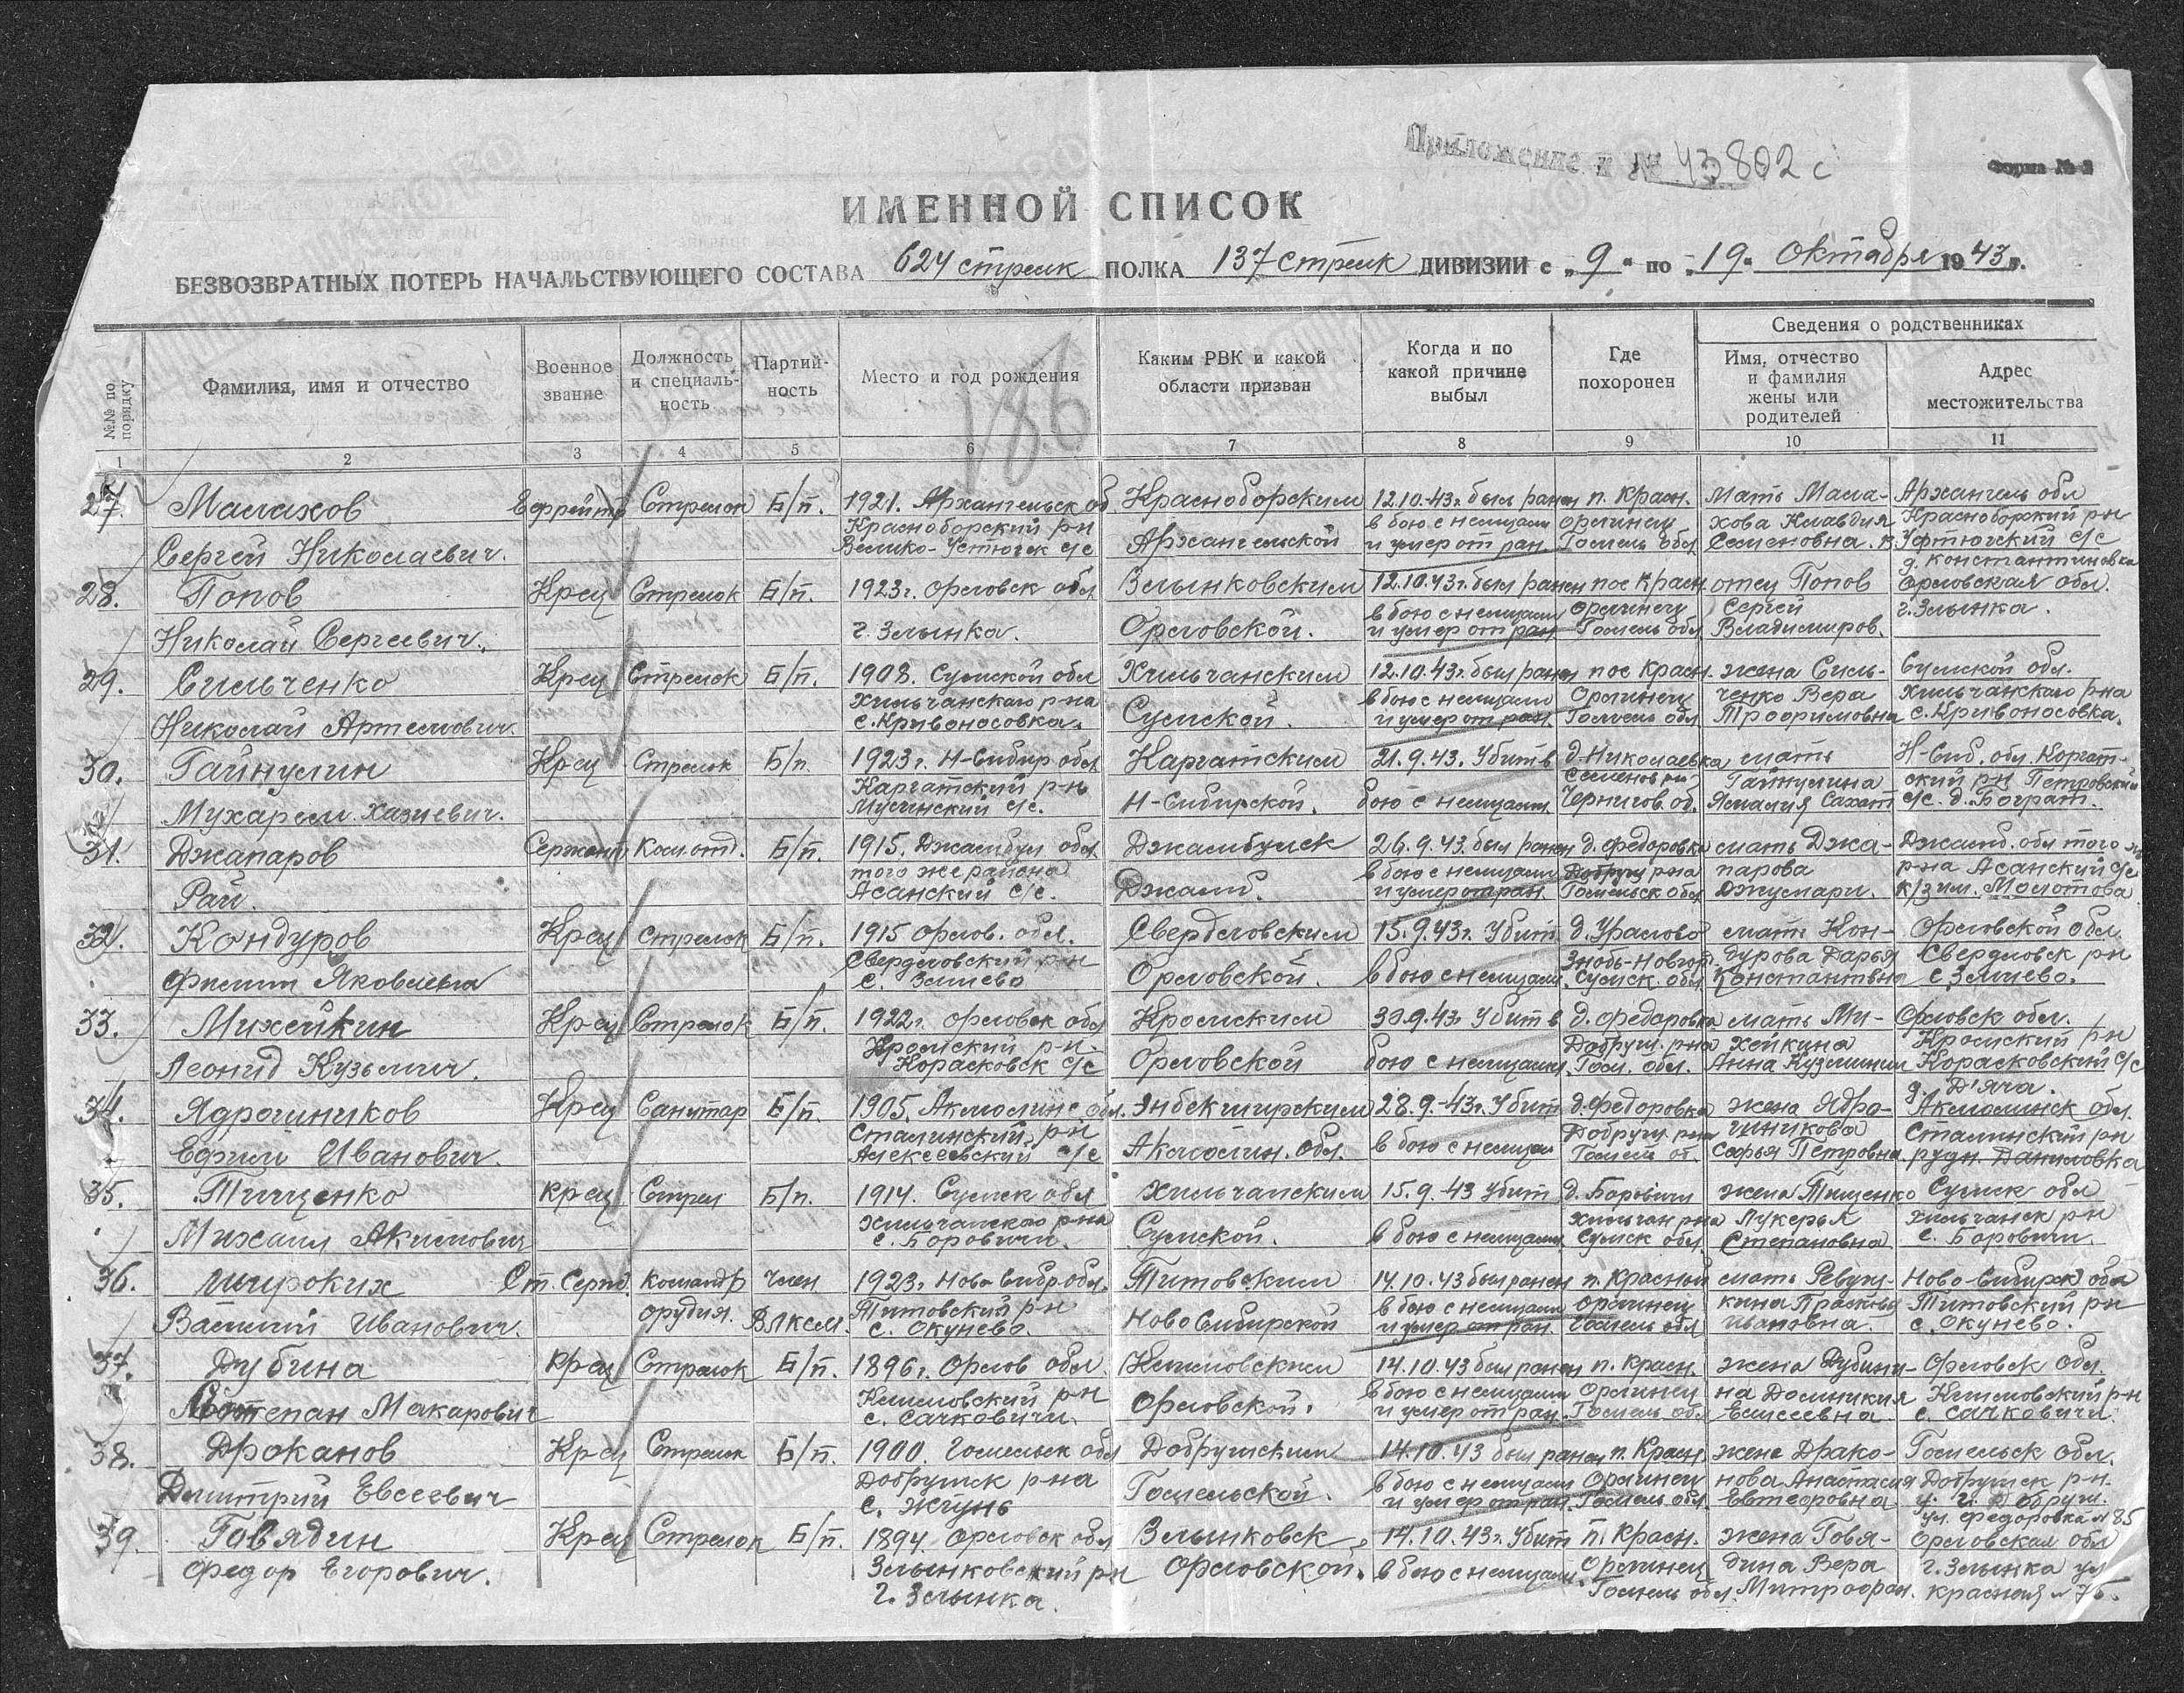 Приложение к № 43802 с
Форма № 2
ИМЕННОЙ СПИСОК
БЕЗВОЗВРАТНЫХ ПОТЕРЬ НАЧАЛЬСТВУЮЩЕГО СОСТАВА 624 стрелк ПОЛКА 137 стрелк ДИВИЗИИ с „9" по „19" Октября 1943 г.
№№ по порядку | Фамилия, имя и отчество | Военное звание | Должность и специальность | Партийность | Место и год рождения | Каким РВК и какой области призван | Когда и по какой причине выбыл | Где похоронен | Сведения о родственниках
Имя, отчество и фамилия жены или родителей | Адрес местожительства
1 2 3 4 5 6 7 8 9 10 11
186
27. Малахов Ефрейт Стрелок Б/п. 1921. Архангельск об Красноборским 12.10.43г. был ранен п. Красн. Мать Мала- Архангель обл
Красноборский р-н в бою с немцами Орлинец хова Клавдия Красноборский р-н
Сергей Николаевич. Велико-Устюгск с/с Архангельской и умер от ран. Гомель обл Семеновна. Уфтюгский с/с
д. Константиновка
28. Попов Крец Стрелок Б/п. 1923г. Орловск обл Злынковским 12.10.43г. был ранен пос Красн. отец Попов Орловская обл.
в бою с немцами Орлинец Сергей г. Злынка.
Николай Сергеевич. г. Злынка. Орловской. и умер от ран Гомель обл Владимиров.
29. Сильченко Крец Стрелок Б/п. 1908. Сумской обл Хильчанским 12.10.43г. был ранен пос Красн. жена Силь- Сумской обл.
Хильчанского р-на в бою с немцами Орлинец ченко Вера Хильчанского р-на
Николай Артемович. с. Кривоносовка. Сумской. и умер от ран. Гомель обл Трофимовна с. Кривоносовка.
30. Гайнулин Крец Стрелок Б/п. 1923г. Н-Сибир обл Каргатским 21.9.43. Убит в д. Николаевка мать Н-Сиб. обл. Каргат-
Каргатский р-н Гайнулина ский р-н Петровский
Мухарям Хазиевич. с/с. Н-Сибирской. бою с немцами. Чернигов. об. с/с. д. Баграт.
31. Джапаров Сержант Ком. отд. Б/п. 1915. Джамбул обл. Джамбулск 26.9.43. был ранен д. Федоровка мать Джа- Джамб. обл того ж
того же района в бою с немцами Добруш р-на парова р-на Асанский с/с
Рай. Асанский с/с. Джамб. и умер от ран. Гомельск обл Джумари. к/з им. Молотова
32. Кондуров Крец Стрелок Б/п. 1915 Орлов. обл. Свердловским 15.9.43г. Убит д. Уралово мать Кон- Орловской обл.
Свердловский р-н Знобь-Новгор. дурова Дарья Свердловск р-н
Филипп Яковлевич с. Змиево Орловской. в бою с немцами. Сумск. обл. Константвна с. Змиево.
33. Михейкин Крец Стрелок Б/п. 1922г. Орловск обл Кромским 30.9.43г Убит в д. Федоровка мать Ми- Орловск обл.
Кромский р-н. Добруш. р-на хейкина Кромский р-н
Леонид Кузьмич. Корасковск с/с Орловской бою с немцами. Гом. обл. Анна Корасковский с/с
д. Д'яча.
34. Ядрошников Крец Санитар Б/п. 1905. Акмолинс обл. Энбекширским 28.9.43г. Убит д. Федоровка жена Ядро- Акмолинск обл.
Сталинский р-н Добруш. р-на шникова Сталинский р-н
Ефим Иванович. Алексеевский с/с Акмолин. обл. в бою с немцами Гомель об. Софья Петровна. рудн. Даниловка
35. Тищенко Крец Стрел Б/п. 1914. Сумск обл Хильчанским 15.9.43 убит д. Боровичи жена Тищенко Сумск обл
Хильчанского р-на Хильчан р-на Лукерья Хильчанск р-н
Михаил Акимович с. Боровичи. Сумской. в бою с немцами. Сумск обл. Степановна с. Боровичи.
36. Широких Ст. Серж. Командр Член 1923г. Ново Сибр. обл. Титовским 14.10.43 был ранен п. Красный мать Ревуш- Ново-Сибирск обл
орудия. ВЛКСМ. Титовский р-н в бою с немцами Орлинец кина Прасковья Титовский р-н
Василий Иванович. с. Окунево. Ново Сибирской и умер от ран. Гомель обл Ивановна. с. Окунево.
37. Дубина Крец Стрелок Б/п. 1896г. Орлов обл. Климовским 14.10.43 был ранен п. Красн. жена Дубини- Орловск обл.
Климовский р-н в бою с немцами Орлинец на Домникия Климовский р-н
Степан Макарович с. Сачковичи. Орловской. и умер от ран. Гомель обл Елисеевна с. Сачковичи.
38. Дроканов Крец Стрелк Б/п. 1900. Гомельск обл Добрушским 14.10.43 был ранен п. Красн. жена Драко- Гомельск обл.
Добрушск р-на в бою с немцами Орлинец нова Анастасия Добрушск р-н.
Дмитрий Евсеевич с. Жгунь Гомельской. и умер от ран. Гомель обл. г. Добруш.
ул. Федоровка № 85
39. Говядин Крец Стрелок Б/п. 1894. Орловск обл Злынковск 14.10.43г. Убит п. Красн. жена Говя- Орловская обл
Федор Егорович. Злынковский р-н Орловской. в бою с немцами. Орлинец дина Вера г. Злынка ул
г. Злынка. Гомель обл. Митрофан. Красная № 76.